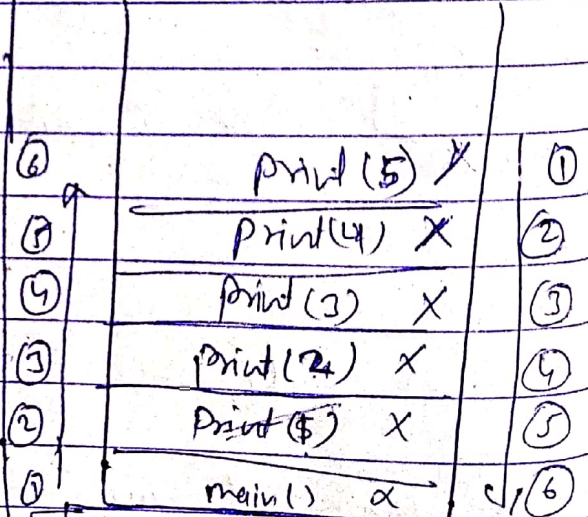 ⑥ print (5) X ①
⑤ print(4) X ②
④ print (3) X ③
③ print (2) X ④
② print ( ) X ⑤
① main() X ⑥